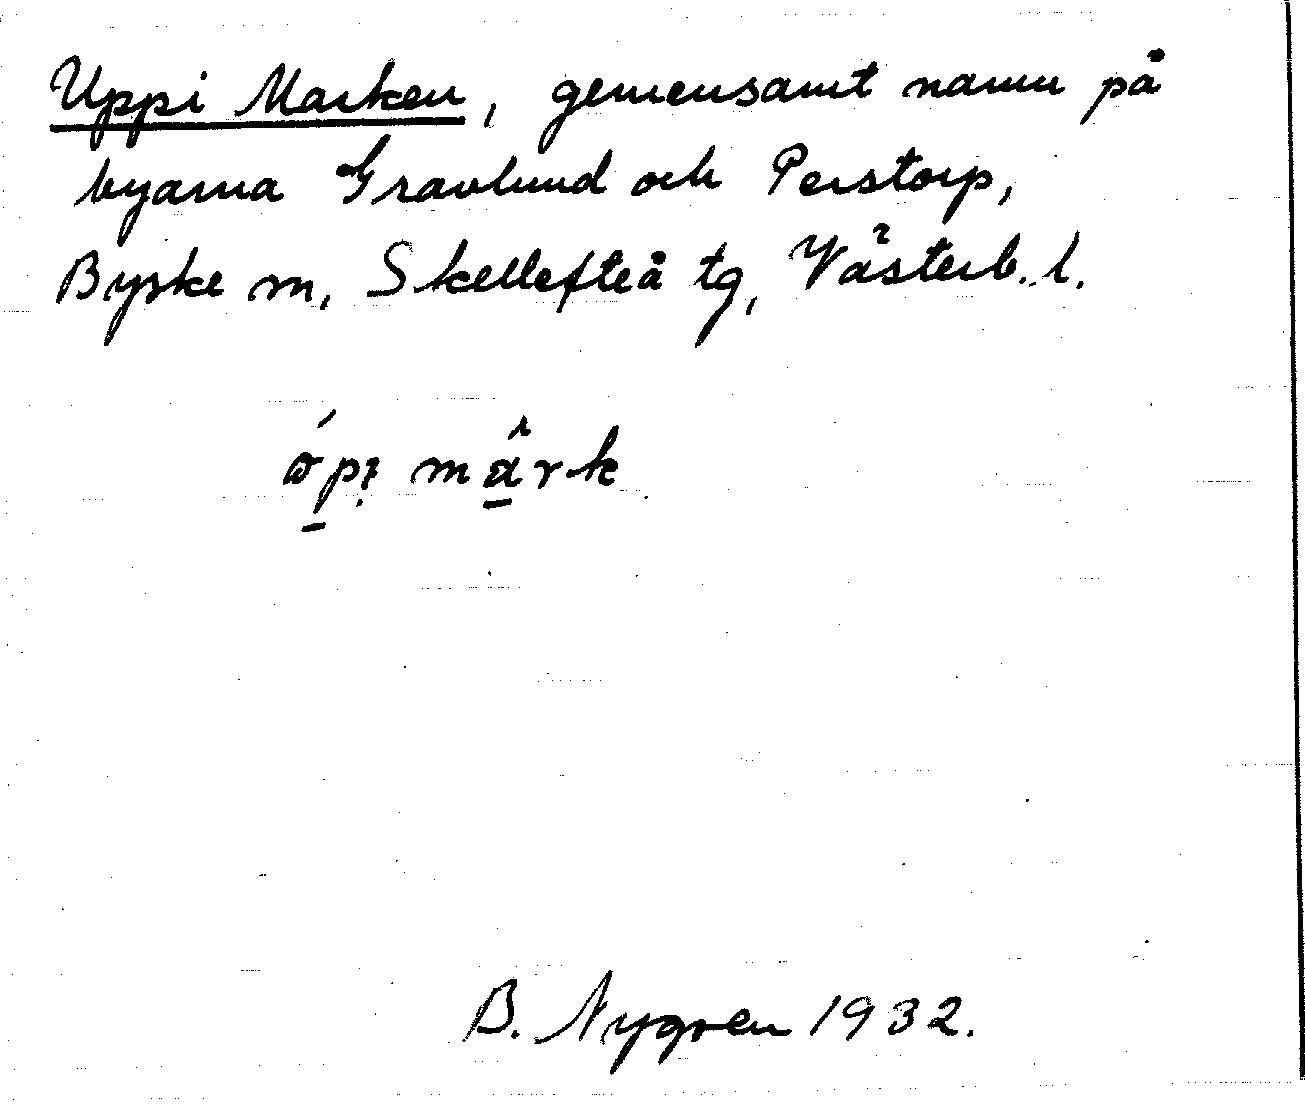 Uppi Marken, gemensamt namn på
byarna Gravlund och Perstorp,
Byske sn, Skellefteå tg, Västerb. l.
B. Nygren 1932.